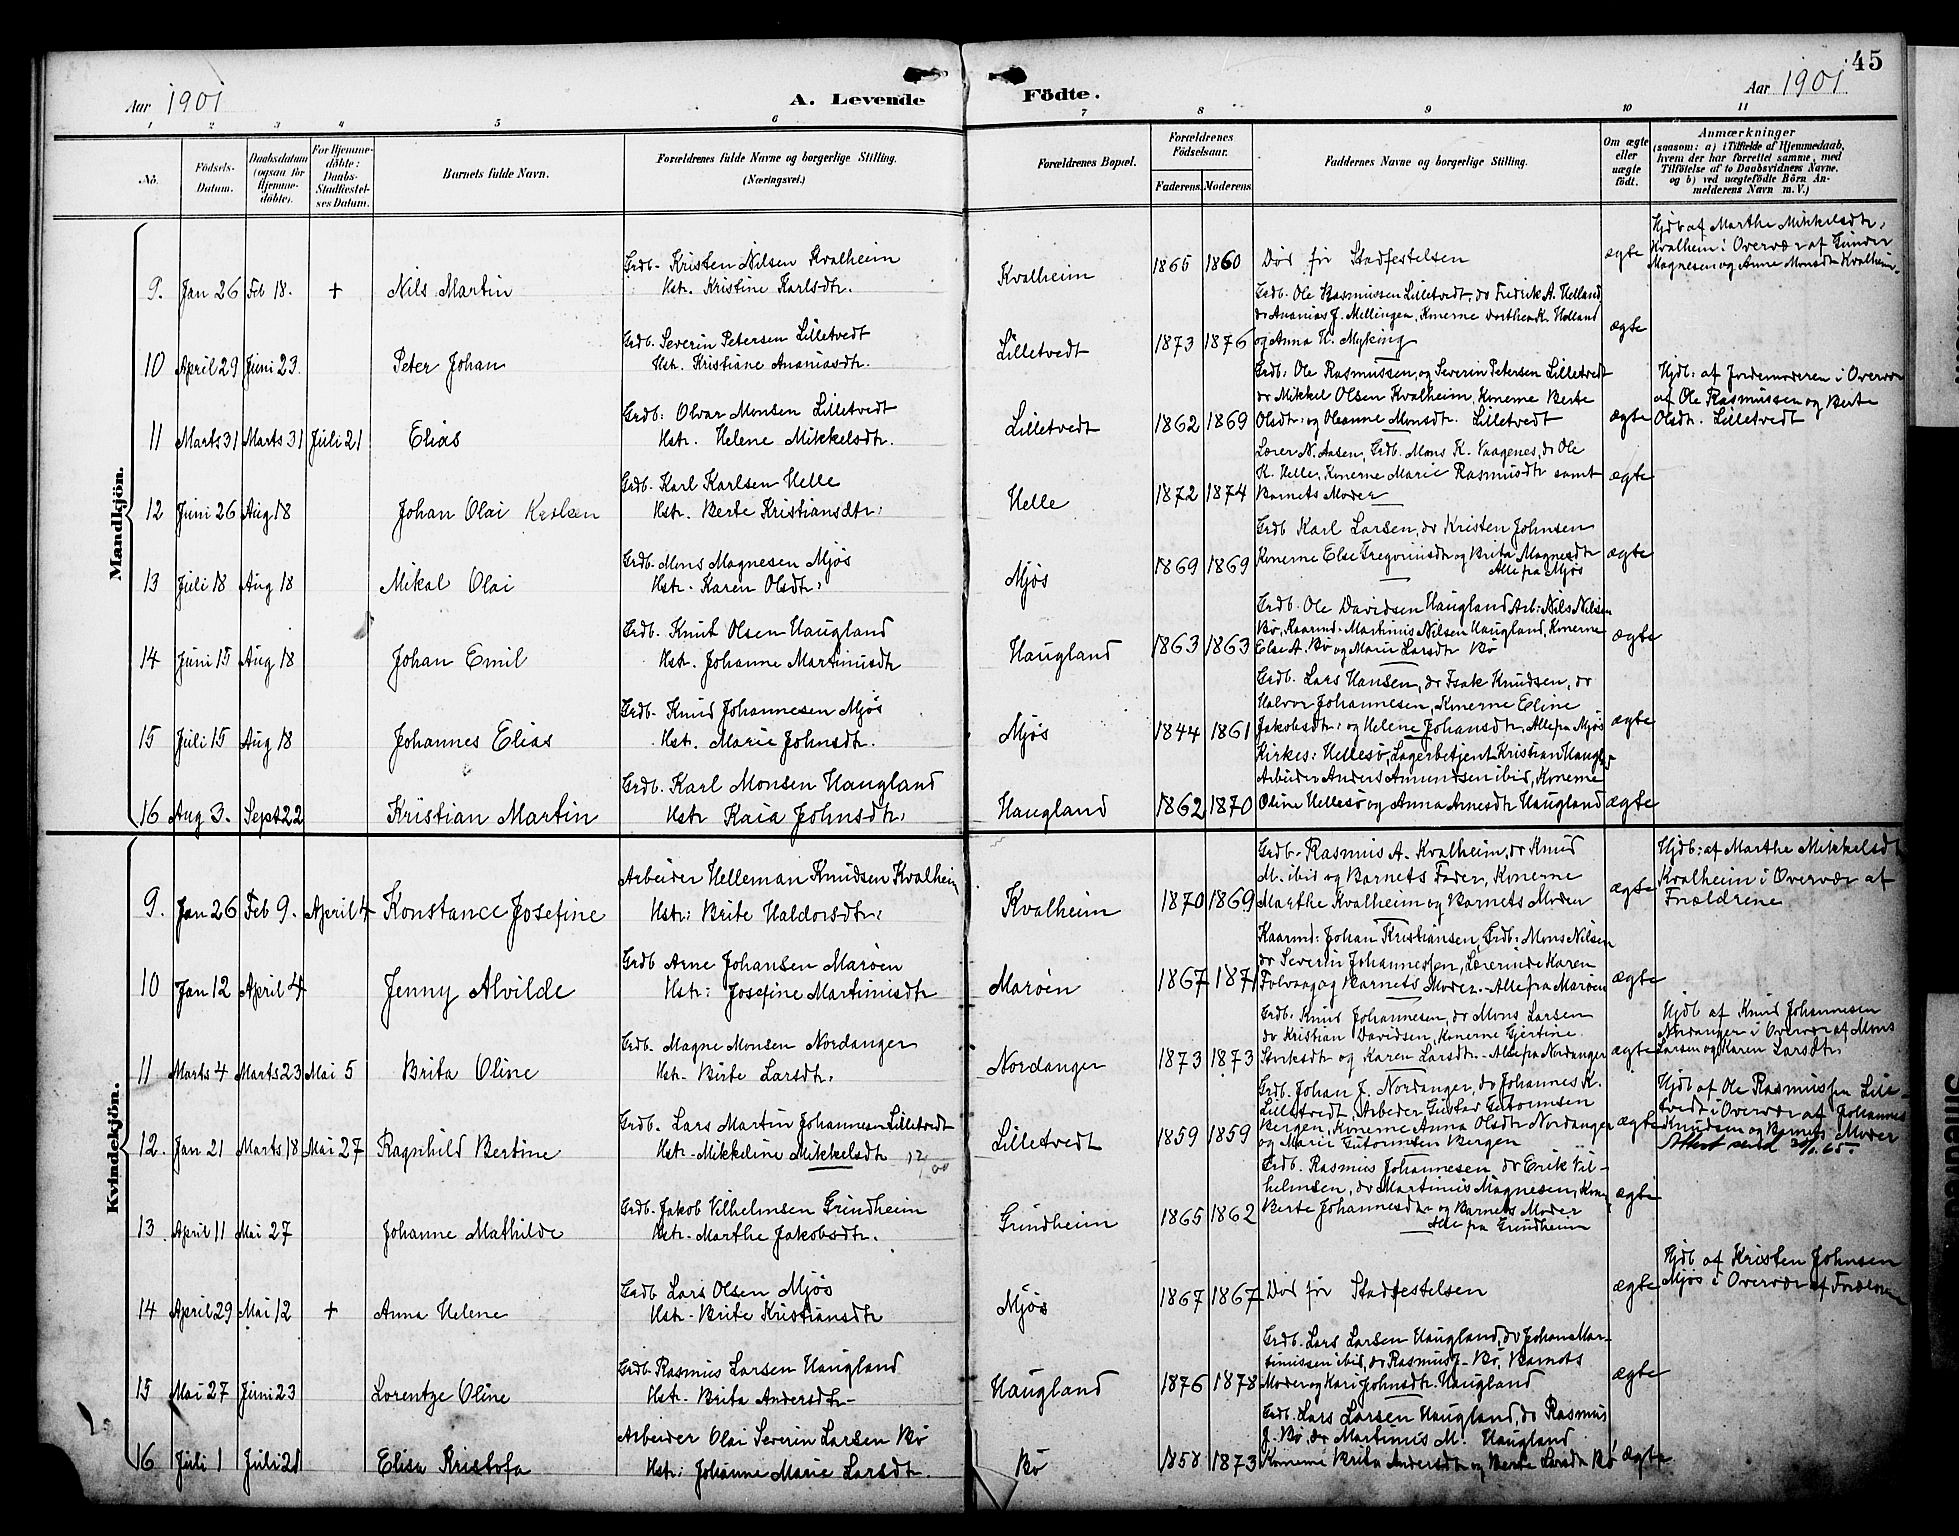 45
Aar 1901
A. Levende Födte.
Aar 1901
1 2 3 4 5 6 7 8 9 10 11
No.
Födsels-Datum.
Daabsdatum (ogsaa for Hjemme-döbte).
For Hjemme-döbte: Daabs-Stadfæstel-ses Datum.
Barnets fulde Navn.
Forældrenes fulde Navne og borgerlige Stilling.
(Næringsvei.)
Forældrenes Bopæl.
Forældrenes Födselsaar.
Faderens. Moderens.
Faddernes Navne og borgerlige Stilling.
Om ægte eller uægte födt.
Anmærkninger
(saasom: a) i Tilfælde af Hjemmedaab,
hvem der har forrettet samme, med
Tilföielse af to Daabsvidners Navne,
og b) ved uægtefödte Börn An-
melderens Navn m. V.)
Mandkjön.
9. Jan 26 Feb 18. + Nils Martin
Grdb. Kristen Nilsen Kvalheim
Hstr. Kristine Karlsdtr.
Kvalheim 1865 1860
Död för Stadfestelsen
ægte
Hjdb af Marthe Mikkelsdtr,
Kvalheim i Overvær af Gunder
Magnesen og Anne Monsdtr Kvalheim.
10 April 29 Juni 23. Peter Johan
Grdb. Severin Petersen Lilletvedt
Hstr. Kristiane Ananiasdtr.
Lilletvedt 1873 1876
Grdb. Ole Rasmussen Lilletvedt, do Fredrik A. Helland
do Ananias J. Mellingen, Konerne Dorthea K. Helland
og Anna K. Myking
ægte
11 Marts 31 Marts 31 Juli 21 Elias
Grdb: Olvar Monsen Lilletvedt
Hstr. Helene Mikkelsdtr.
Lilletvedt 1862 1869
Grdb: Ole Rasmussen, og Severin Petersen Lilletvedt
do Mikkel Olsen Kvalheim, Konerne Berte
Olsdtr: og Oleanne Monsdtr. Lilletvedt
ægte
Hjdb: af Jordemoderen i Overvær
af Ole Rasmussen og Berte
Olsdtr. Lilletvedt
12 Juni 26 Aug 18 Johan Olai Karlsen
Grdb. Karl Karlsen Helle
Hstr. Berte Kristiansdtr:
Helle 1872 1874
Lærer N. Aasen, Grdb. Mons K. Vaagenes, do Ole
K. Helle, Konerne Marie Rasmusdtr samt
Barnets Moder
ægte
13 Juli 18 Aug 18 Mikal Olai
Grdb. Mons Magnesen Mjøs
Hstr. Karen Olsdtr:
Mjøs 1869 1869
Grdb Karl Larsen, do Kristen Johnsen
Konerne Else Gregoriusdtr og Brita Magnesdtr
Alle fra Mjøs
ægte
14 Juni 15 Aug 18 Johan Emil
Grdb. Knut Olsen Haugland
Hstr. Johanne Martinusdtr
Haugland 1863 1863
Grdb. Ole Davidsen Haugland Arb: Nils Nilsen
Bø, Kaarmd. Martinus Nilsen Haugland, Konerne
Else A. Bø og Marie Larsdtr Bø
ægte
15 Juli 15 Aug 18 Johannes Elias
Grdb. Knud Johannesen Mjøs
Hstr. Marie Johnsdtr.
Mjøs 1844 1861
Grdb. Lars Hansen, do Isak Knudsen, do
Halvor Johannesen, Konerne Eline
Jakobsdtr: og Helene Johansdtr, Alle fra Mjøs
ægte
16 Aug 3. Sept 22 Kristian Martin
Grdb. Karl Monsen Haugland
Hstr Kaia Johnsdtr:
Haugland 1862 1870
Kirkes: Hellesø, Lagerbetjent Kristian Haugl.
Arbeider Anders Amundsen ibid, Konerne
Oline Hellesø og Anna Arnesdtr Haugland
ægte
Kvindekjön.
9. Jan 26 Feb 9. April 4 Konstance Josefine
Arbeider Helleman Knudsen Kvalheim
Hstr: Brite Haldorsdtr:
Kvalheim 1870 1869
Grdb. Rasmus A. Kvalheim, do Knud
M. ibid og Barnets Fader, Konerne
Marthe Kvalheim og Barnets Moder
ægte
Hjdb: af Marthe Mikkelsdtr
Kvalheim i Overvær af
Forældrene
10 Jan 12 April 4 Jenny Alvilde
Grdb Arne Johansen Marøen
Hstr: Josefine Martinusdtr
Marøen 1867 1871
Kaarmd: Johan Kristiansen, Grdb: Mons Nilsen
do Severin Johannessen, Lærerinde Karen
Folvaag og Barnets Moder. Alle fra Marøen
ægte
11 Marts 4 Marts 23 Mai 5 Brita Oline
Grdb. Magne Monsen Nordanger
Hstr. Birte Larsdtr.
Nordanger 1873 1873
Grdb. Knud Johannesen, do Mons Larsen
do Kristian Davidsen, Konerne Gjertine
Storksdtr og Karen Larsdtr. Alle fra Nordanger
ægte
Hjdb af Knud Johannesen
Nordanger i Overvær af Mons
Larsen og Karen Larsdtr,
12. Jan 21 Marts 18 Mai 27 Ragnhild Bertine
Grdb. Lars Martin Johannesen Lilletvedt
Hstr. Mikkeline Mikkelsdtr
Lilletvedt 1859 1859
Grdb. Johan J. Nordanger, do Johannes K.
Lilletvedt, Arbeder Gustav Gutormsen
Bergen, Konerne Anna Olsdtr Nordanger
og Marie Gutormsen Bergen
ægte
Hjdb af Ole Rasmussen Lille-
tvedt i Overvær af Johannes
Knudsen og Barnets Moder
Attest send
13. April 11 Mai 27 Johanne Mathilde
Grdb. Jakob Vilhelmsen Grindheim
Hstr. Marthe Jakobsdtr.
Grindheim 1865 1862
Grdb. Rasmus Johannesen, do Erik Vil-
helmsen, do Martinus Magnesen, Kone
Berte Johannesdtr og Barnets Moder
Alle fra Grindheim
ægte
14 April 29 Mai 12 + Anna Helene
Grdb Lars Olsen Mjøs
Hstr. Brite Kristiansdtr
Mjøs 1867 1867
Död för Stadfestelsen
ægte
Hjdb af Kristen Johnsen
Mjøs i Overvær af Forældrene
15 Mai 27 Juni 23 Lorentze Oline
Grdb. Rasmus Larsen Haugland
Hstr. Brita Andersdtr.
Haugland 1876 1878
Grdb. Lars Larsen Haugland, do Johan Mar-
tinussen ibid, do Rasmus J. Bø, Barnets
Moder og Kari Johnsdtr. Haugland
ægte
16 Juli 1 Juli 21 Elisa Kristofa
Arbeider Olai Severin Larsen Bø
Hstr: Johanne Marie Larsdtr.
Bø 1858 1873
Grdb. Lars Larsen Haugland, do Rasmus
J. Bø, do Martinus M. Haugland
Konerne Brita Andersdtr og Berte Larsdtr Bø
ægte